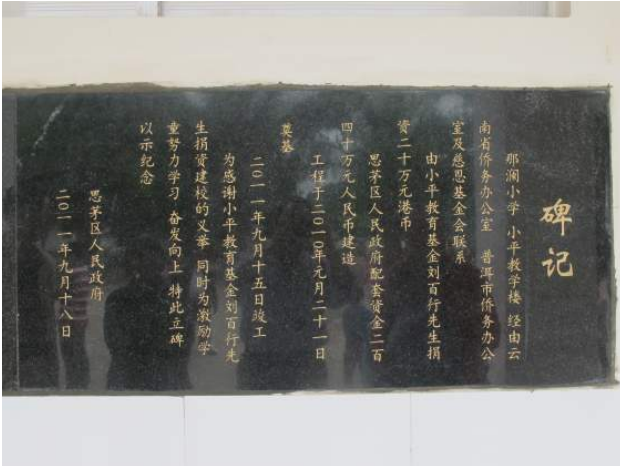 碑记
那澜小学 小平教学楼 经由云
南省侨务办公室 普洱市侨务办公
室及慈恩基金会联系
由小平教育基金刘百行先生捐
资二十万元港币
思茅区人民政府配套资金二百
四十万元人民币建造
工程于二〇一〇年元月二十一日
奠基
二〇一一年九月十五日竣工
为感谢小平教育基金刘百行先
生捐资建校的义举 同时为激励学
童努力学习 奋发向上 特此立碑
以示纪念
思茅区人民政府
二〇一一年九月十八日